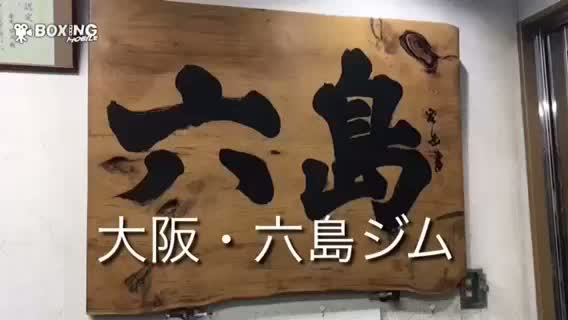 BOXING
MOBILE
六島
大阪・六島ジム